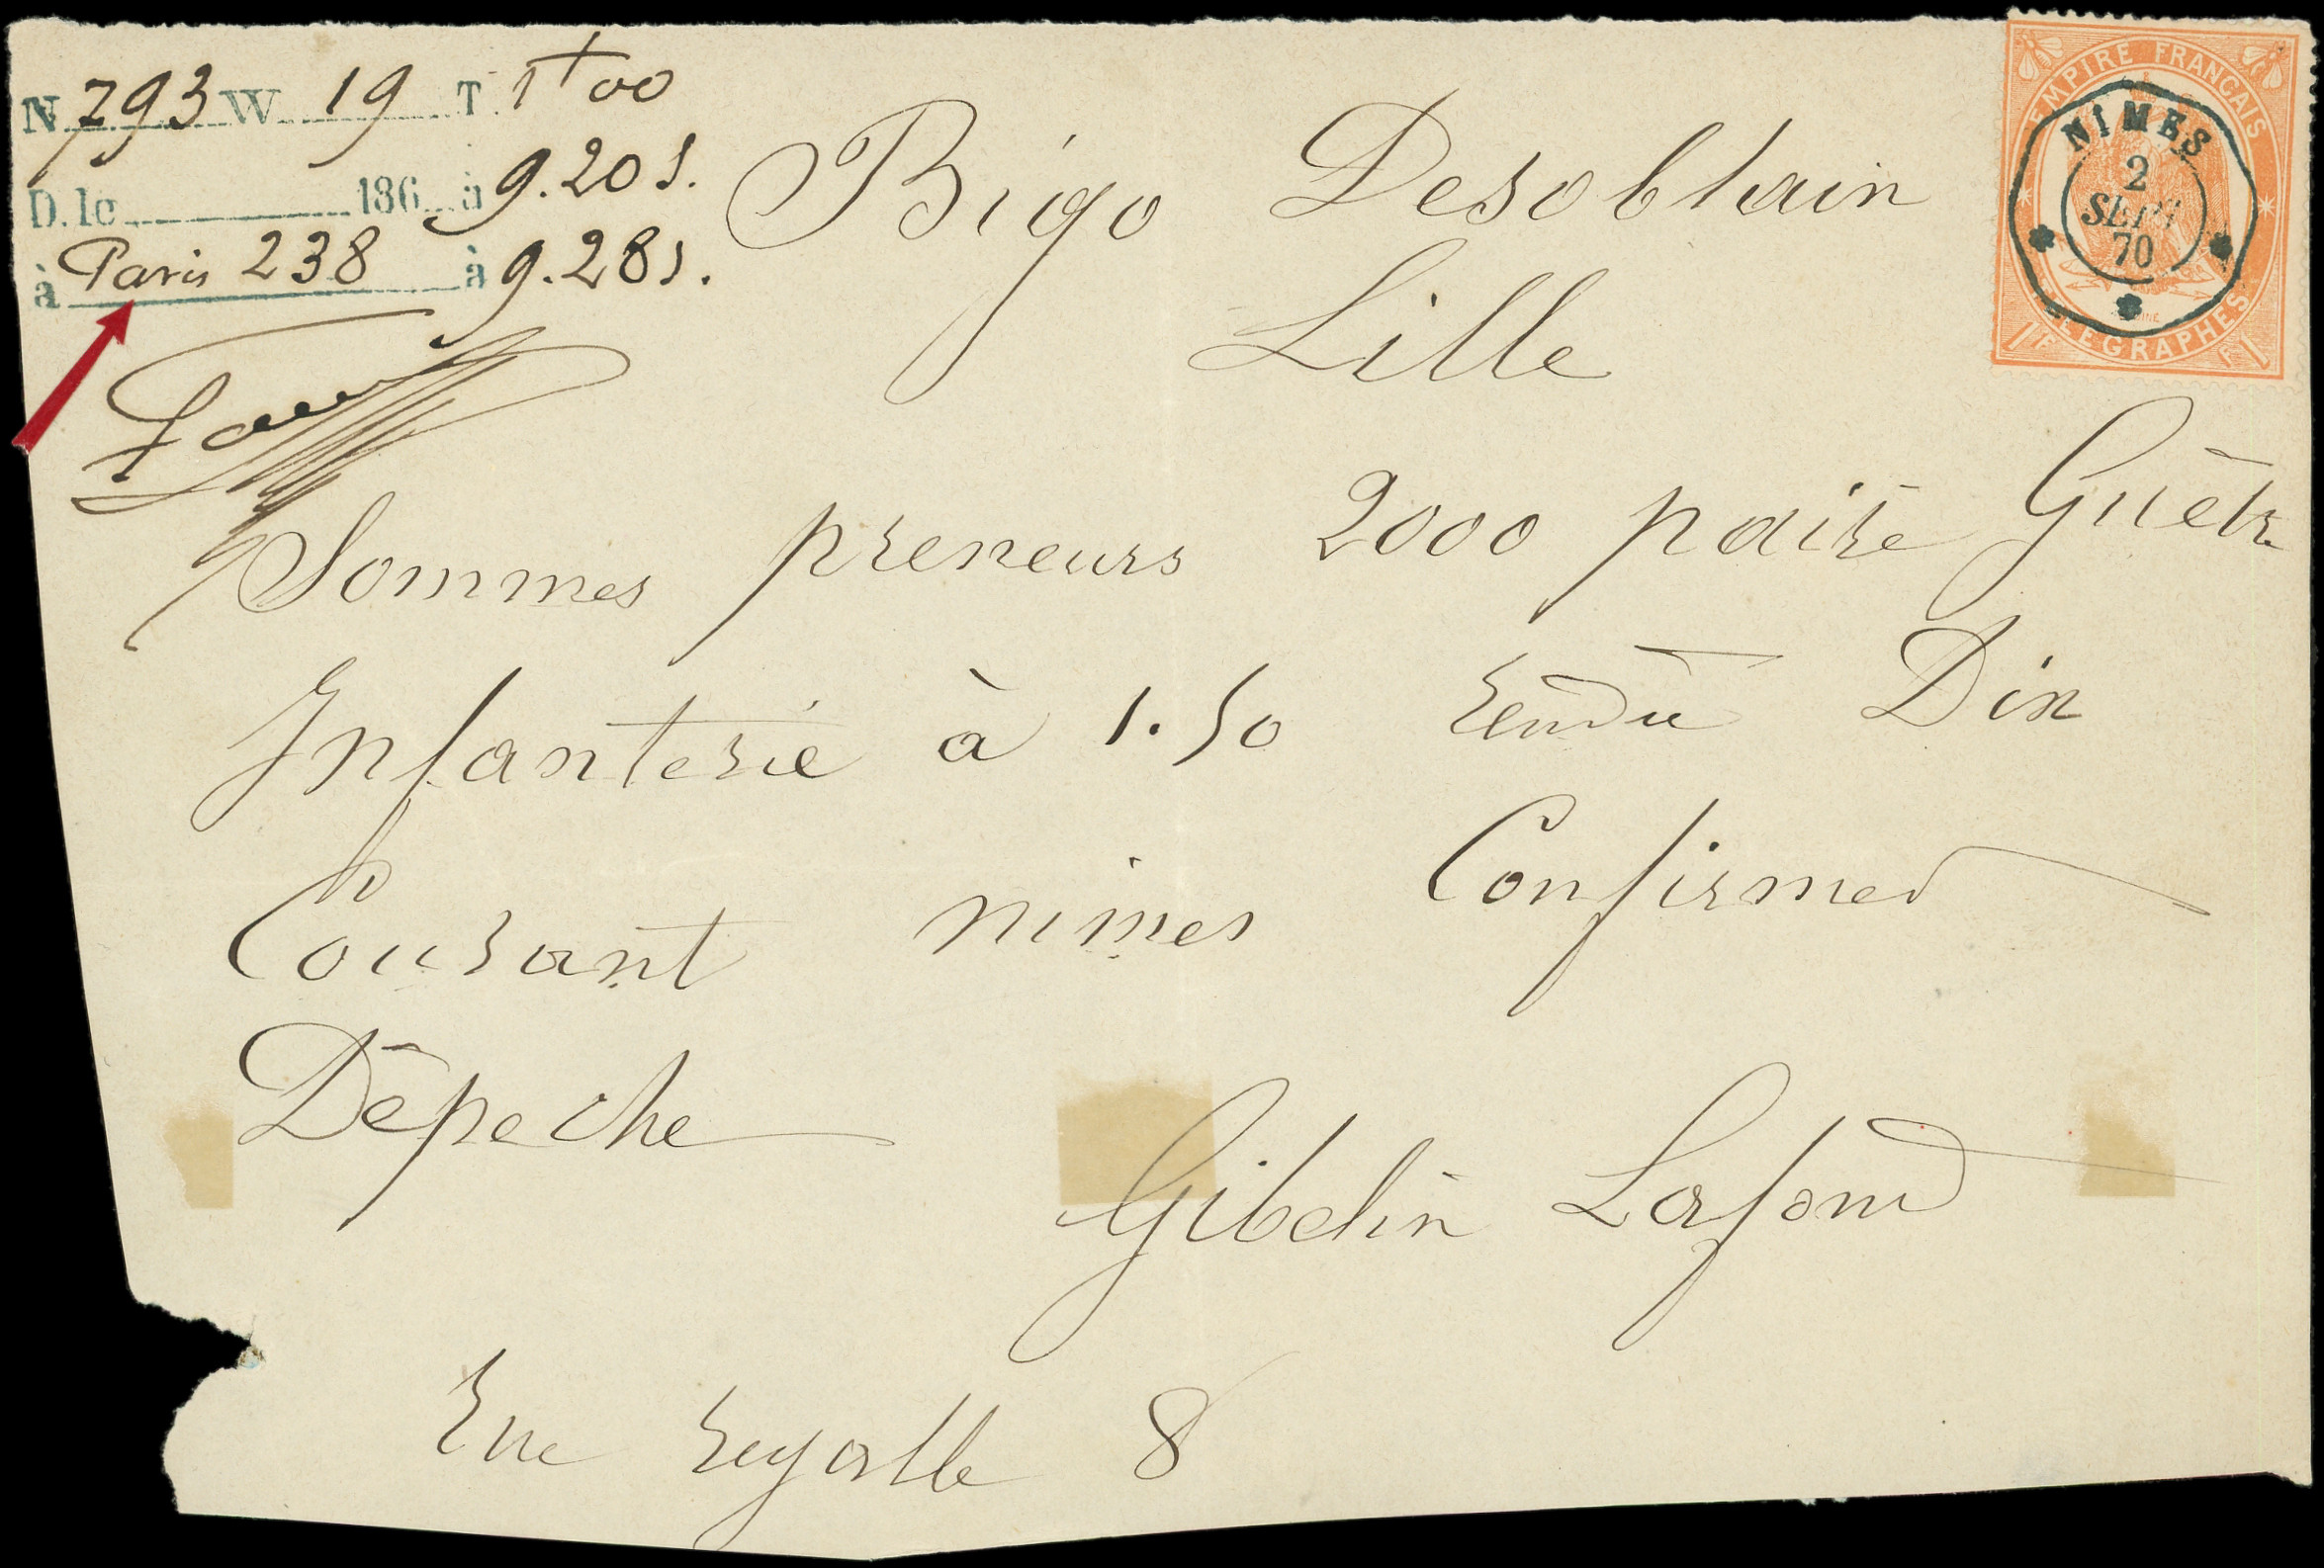 N 793 W 19 T 1f 00
D. le 186 à 9.20 s.
à Paris 238 à 9.28 s.
Bigo Desoblain
Lille
EMPIRE FRANÇAIS
NIMES
2
SEPT
70
TÉLÉGRAPHES
1F F1
Sommes preneurs 2000 paire Guêtre
Infanterie à 1.50 rendu Dix
Courant nimes Confirmed
Dépeche
Gibelin Lafond
rue regalle 8